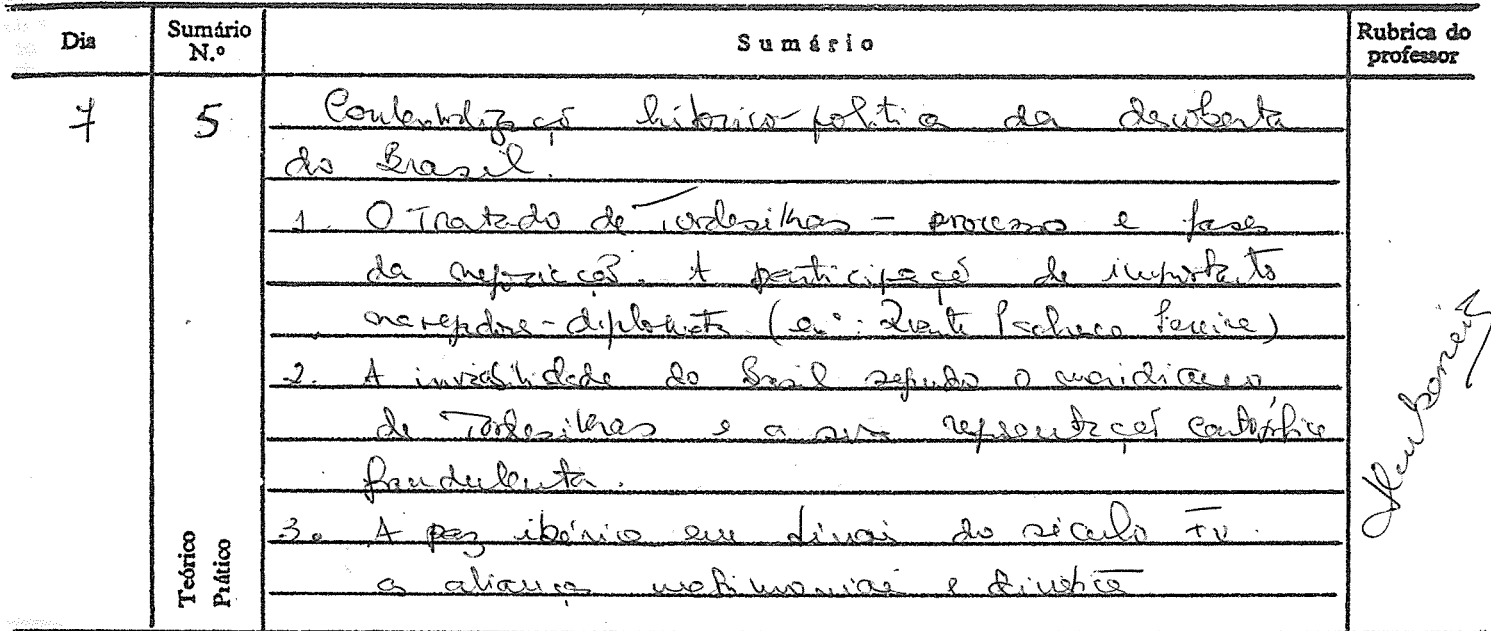 Dia
Sumário N.º
Sumário
Rubrica do professor
7
5
Contextualização histórico-política da descoberta
do Brasil.
1. O Tratado de Tordesilhas - processo e fases
da negociação. A participação de importantes
navegadores-diplomatas (ex.: Duarte Pacheco Pereira)
2. A invisibilidade do Brasil segundo o meridiano
de Tordesilhas e a sua representação cartográfica
fraudulenta.
3. A paz ibérica em finais do século XV.
as alianças matrimoniais e
Teórico
Prático